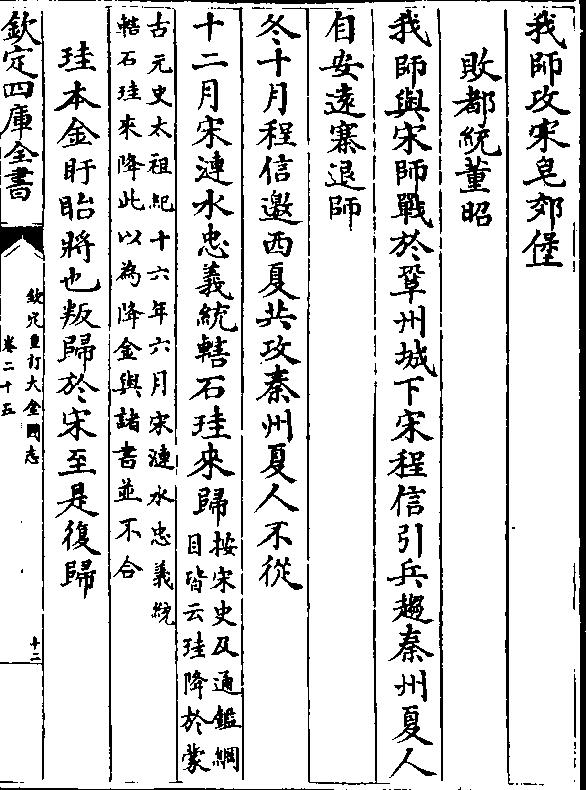 我師攻宋皂郊堡
敗都統董昭
我師與宋師戰於鞏州城下宋程信引兵趨秦州夏人
自安遠寨退師
冬十月程信邀西夏共攻秦州夏人不從
十二月宋漣水忠義統轄石珪來歸按宋史及通鑑綱
目皆云珪降於蒙
古元史太祖紀十六年六月宋漣水忠義統
轄石珪來降此以為降金與諸書並不合
珪本金盱眙將也叛歸於宋至是復歸
欽定四庫全書
欽定重訂大金國志
卷二十五
十二